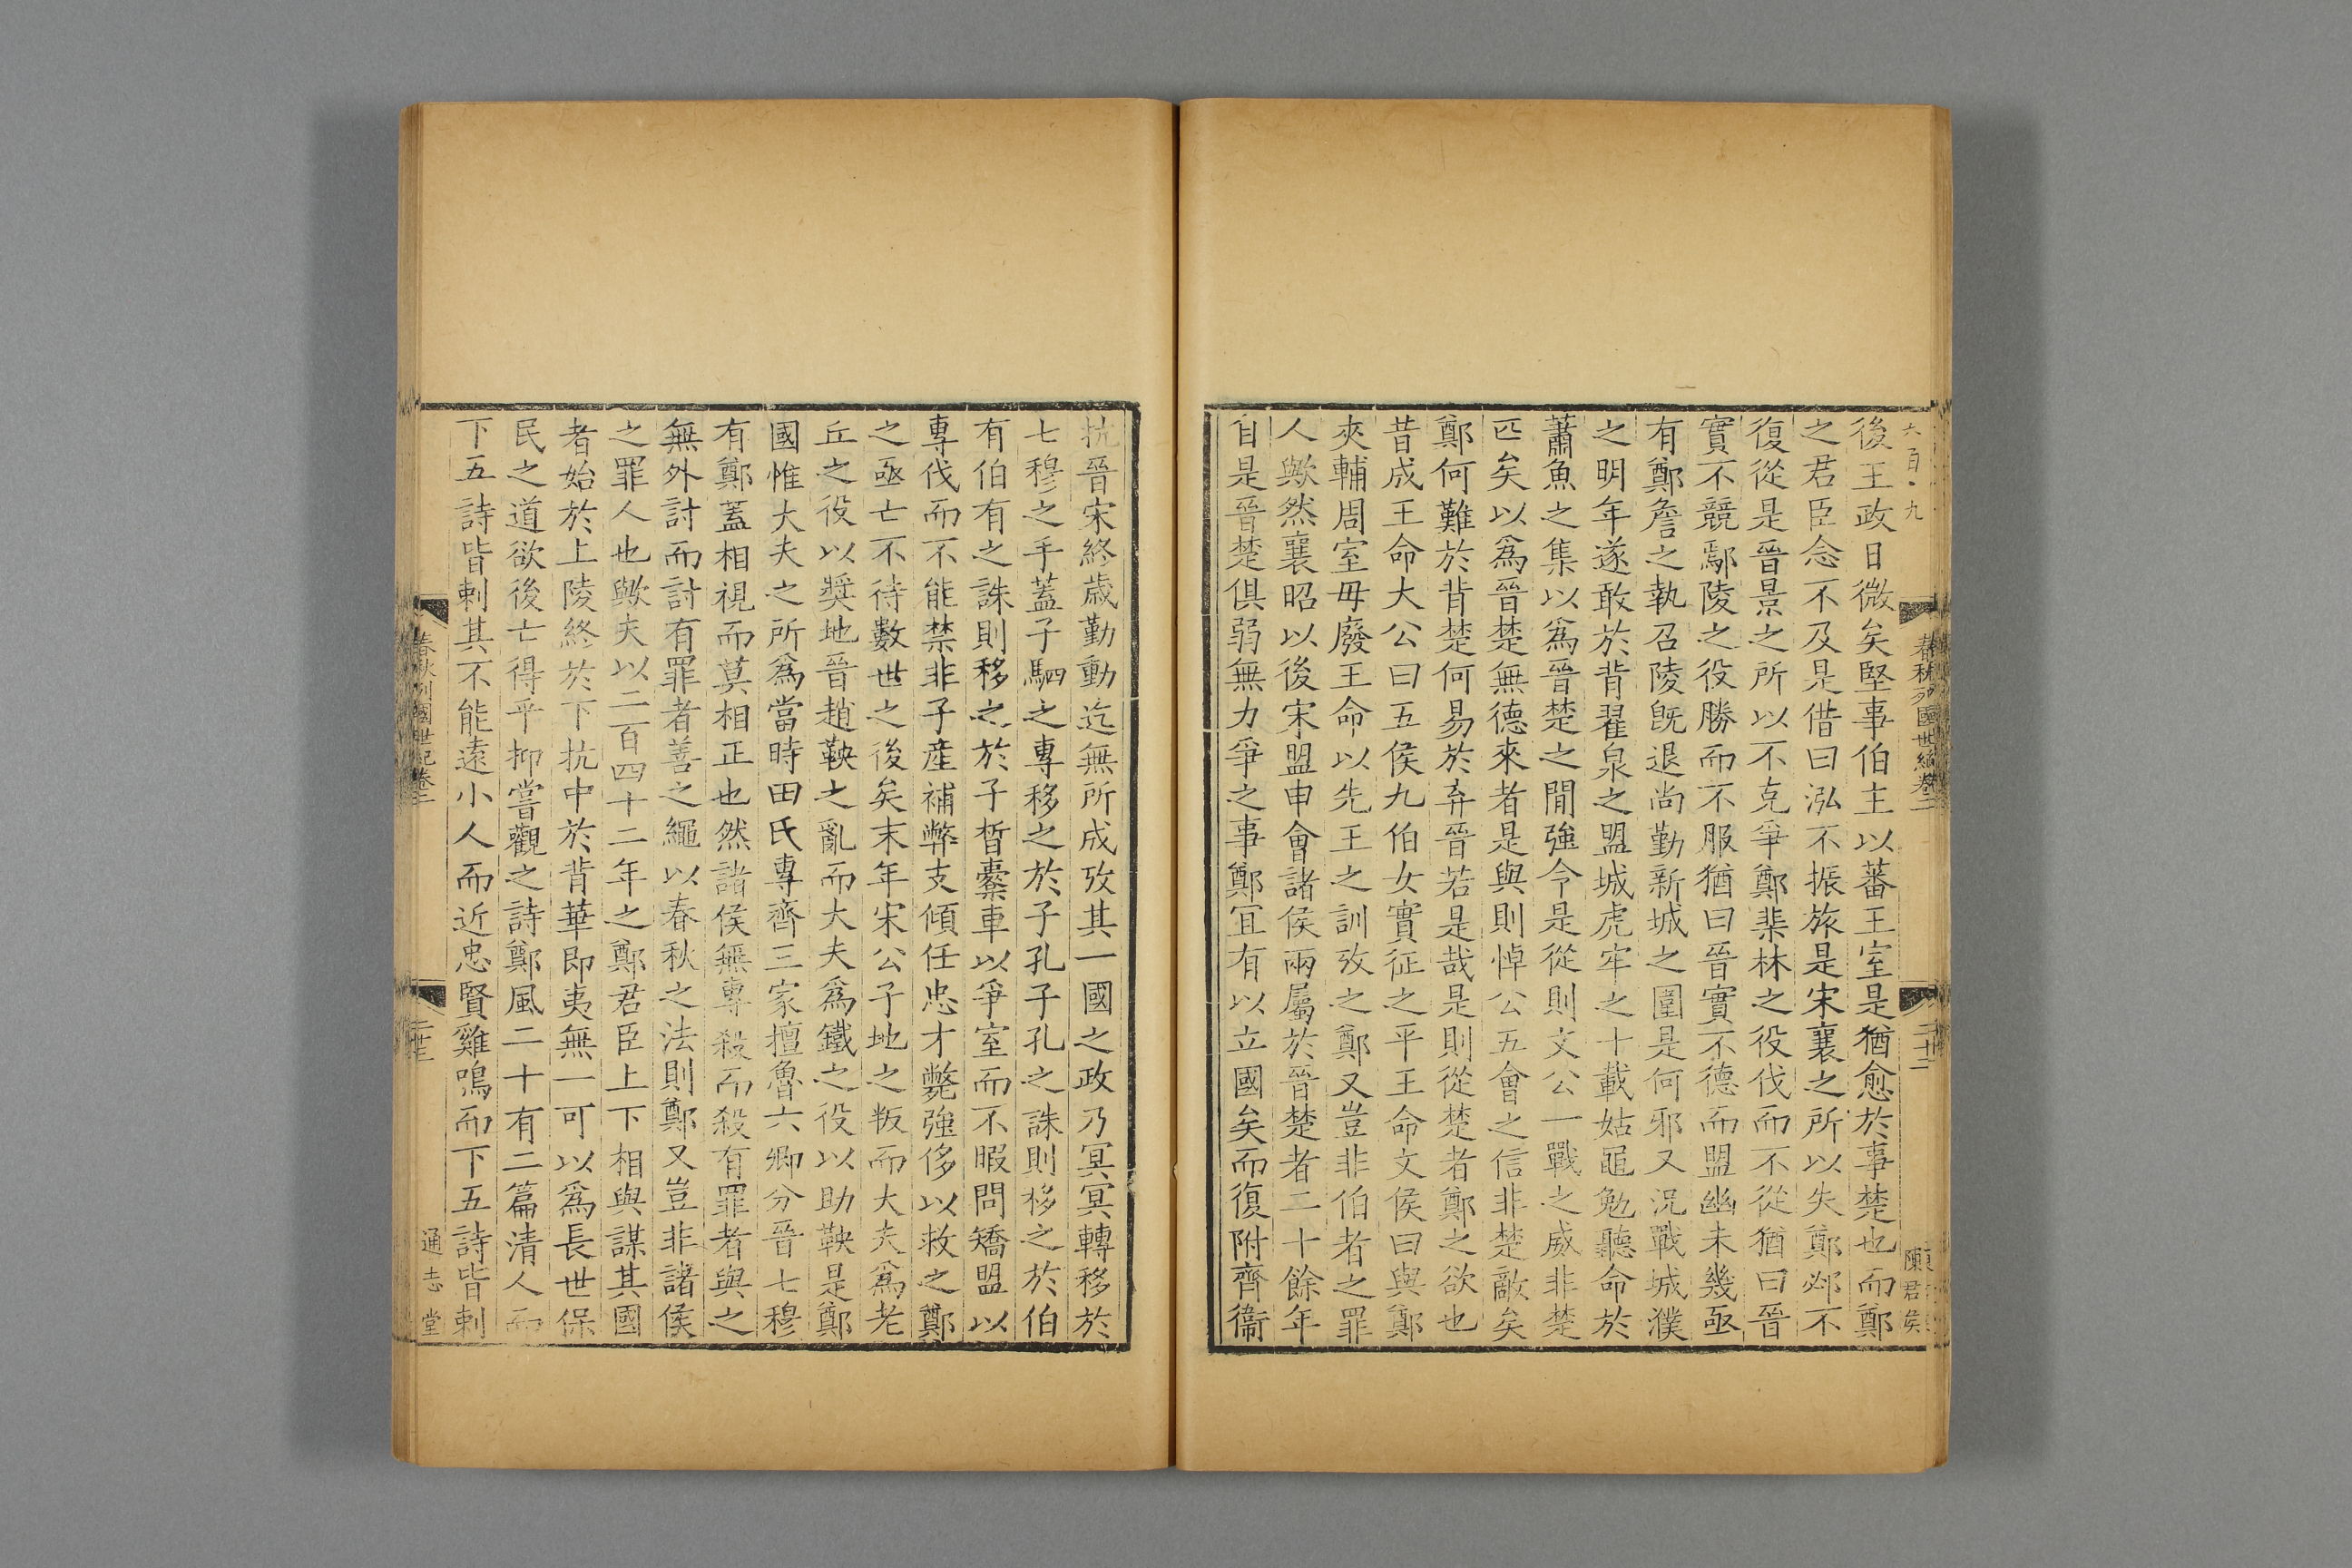 六百·九
春秋列國世紀卷二
二十二
陳君矦
後王政日微矣堅事伯主以蕃王室是猶愈於事楚也而鄭
之君臣念不及是借曰泓不振旅是宋襄之所以失鄭邲不
復從是晉景之所以不克爭鄭棐林之役伐而不從猶曰晉
實不競鄢陵之役勝而不服猶曰晉實不德而盟幽未幾亟
有鄭詹之執召陵旣退尚勤新城之圍是何邪又況戰城濮
之明年遂敢於背翟泉之盟城虎牢之十載姑黽勉聽命於
蕭魚之集以爲晉楚之間強令是從則文公一戰之威非楚
匹矣以爲晉楚無德來者是與則悼公五會之信非楚敵矣
鄭何難於背楚何易於弃晉若是哉是則從楚者鄭之欲也
昔成王命大公曰五侯九伯女實征之平王命文侯曰與鄭
夾輔周室毋廢王命以先王之訓攷之鄭又豈非伯者之罪
人歟然襄昭以後宋盟申會諸侯兩屬於晉楚者二十餘年
自是晉楚俱弱無力爭之事鄭宜有以立國矣而復附齊衞
抗晉宋終歲勤動迄無所成攷其一國之政乃冥冥轉移於
七穆之手蓋子駟之專移之於子孔子孔之誅則移之於伯
有伯有之誅則移之於子晳櫜車以爭室而不暇問矯盟以
專伐而不能禁非子産補弊支傾任忠才斃強侈以救之鄭
之亟亡不待數世之後矣末年宋公子地之叛而大夫爲老
丘之役以奬地晉趙鞅之亂而大夫爲鐵之役以助鞅是鄭
國惟大夫之所爲當時田氏專齊三家擅魯六卿分晉七穆
有鄭蓋相視而莫相正也然諸侯無專殺而殺有罪者與之
無外討而討有罪者善之繩以春秋之法則鄭又豈非諸侯
之罪人也歟夫以二百四十二年之鄭君臣上下相與謀其國
者始於上陵終於下抗中於背華即夷無一可以爲長世保
民之道欲後亡得乎抑嘗觀之詩鄭風二十有二篇清人而
下五詩皆刺其不能遠小人而近忠賢雞鳴而下五詩皆刺
春秋列國世紀卷二
二十三
通志堂